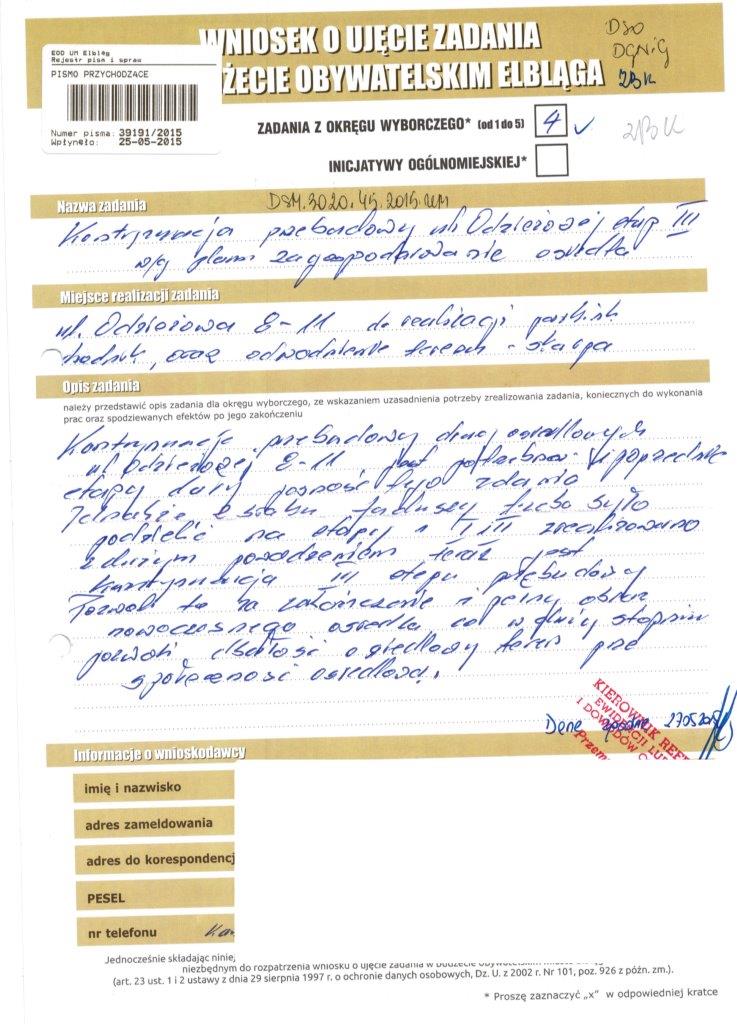 WNIOSEK O UJĘCIE ZADANIA
DSO
DGNiG
EOD UM Elbląg
Rejestr pism i spraw
PISMO PRZYCHODZĄCE
ŻECIE OBYWATELSKIM ELBLĄGA
ZBK
Numer pisma: 39191/2015
Wpłynęło: 25-05-2015
ZADANIA Z OKRĘGU WYBORCZEGO* (od 1 do 5) 4
ZBK
INICJATYWY OGÓLNOMIEJSKIEJ*
Nazwa zadania
DSM.3020.45.2015.
Kontynuacja przebudowy ul. Odzieżowej etap III
w/g planu zagospodarowanie osiedla
Miejsce realizacji zadania
ul. Odzieżowa 8-11 do realizacji parking
chodnik, oraz odwodnienie terenu - skarpa
Opis zadania
należy przedstawić opis zadania dla okręgu wyborczego, ze wskazaniem uzasadnienia potrzeby zrealizowania zadania, koniecznych do wykonania
prac oraz spodziewanych efektów po jego zakończeniu
Kontynuacja przebudowy dróg osiedlowych
ul Odzieżowej 8-11 jest
etapy tego zdania
trzeba było
podzielić na etapy i I i II zrealizowano
z dużym powodzeniem teraz jest
kontynuacja III etapu przebudowy
Pozwoli to na zakończenie i pełny obraz
nowoczesnego osiedla co w dużym stopniu
pozwoli dbałość o osiedlowy teren
społeczność osiedlową.
Dane zgodne 27.05.2015
KIEROWNIK REF
EWIDENCJI LU
I DOWODÓW O
Przem
Informacje o wnioskodawcy
imię i nazwisko
adres zameldowania
adres do korespondencj
PESEL
nr telefonu
Jednocześnie składając ninie
niezbędnym do rozpatrzenia wniosku o ujęcie zadania w budżecie obywatelskim
(art. 23 ust. 1 i 2 ustawy z dnia 29 sierpnia 1997 r. o ochronie danych osobowych, Dz. U. z 2002 r. Nr 101, poz. 926 z późn. zm.).
* Proszę zaznaczyć „x" w odpowiedniej kratce